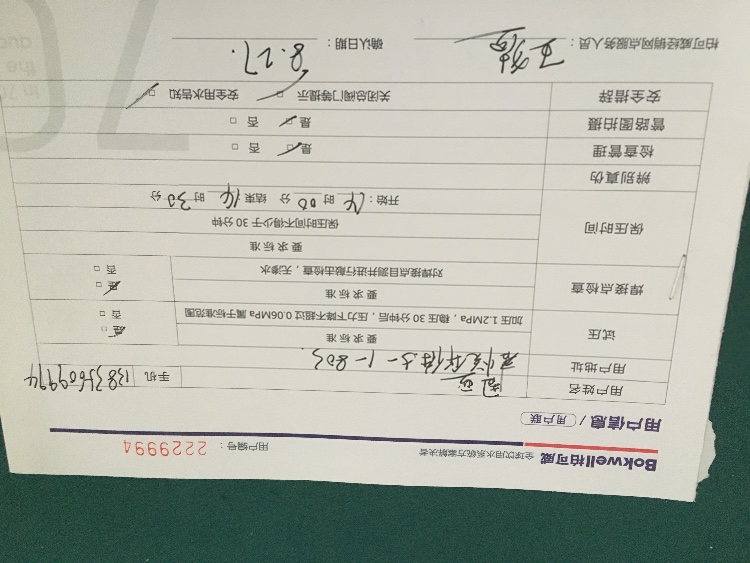 Bokwell柏可威 全球饮用水系统方案解决者 用户编号：2229994
用户信息 / 用户联
用户姓名 手机 13835609994
用户地址 5-1-803
试压 要求标准
加压1.2MPa，稳压30分钟后，压力下降不超过0.06MPa属于标准范围
是 否
焊接点检查 要求标准
对焊接点目测并进行敲击检查，无渗水
是 否
保压时间 要求标准
保压时间不得少于30分钟
开始：14时00分 结束14时30分
辨别真伪
检查管理 是 否
管路图拍摄 是 否
安全措辞 关闭总阀门等提示 安全用水告知
柏可威经销网点服务人员： 确认日期：8.27.